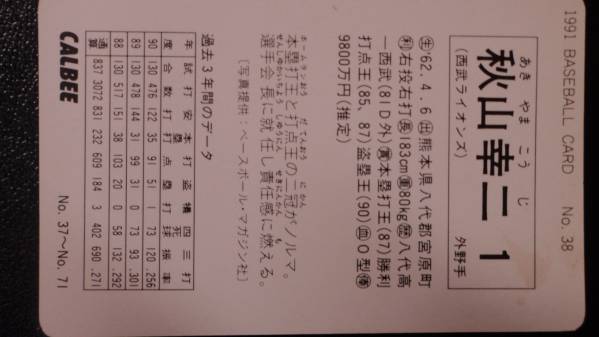 1991 BASEBALL CARD No. 38
あき やま こう じ
秋山幸二 1
(西武ライオンズ) 外野手
生'62.4.6出熊本県八代郡宮原町
利右投右打長183cm重80kg歴八代高
―西武(81D外)賞本塁打王(87)勝利
打点王(85、87)盗塁王(90)血O型推
9800万円(推定)
ホームランおう だてんおう にかん
本塁打王と打点王の二冠がノルマ。
せんしゅかいちょう しゅうにん せきにんかん も
選手会長に就任し責任感に燃える。
〔写真提供:ベースボール・マガジン社〕
過去3年間のデータ
年度 試合 打数 安打 本塁打 打点 盗塁 犠打 四死球 三振 打率
90 130 476 122 35 91 51 1 73 120 .256
89 130 478 144 31 99 31 0 73 93 .301
88 130 517 151 38 103 20 0 58 132 .292
通算 837 3072 831 232 609 184 3 402 690 .271
CALBEE No. 37〜No. 71